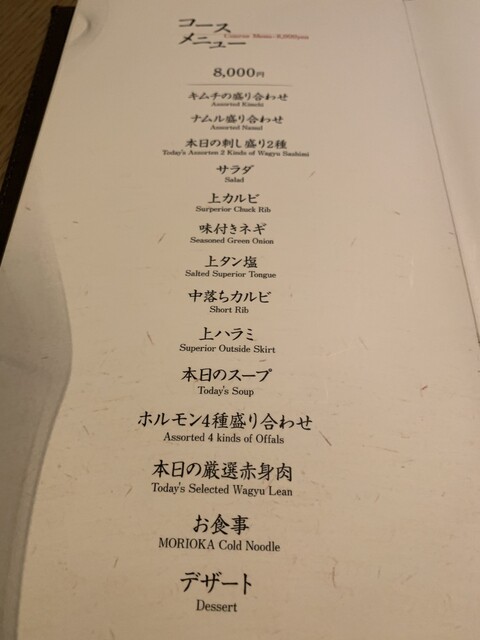 コース
メニュー
Course Menu -8,000yen
8,000円
キムチの盛り合わせ
Assorted Kimchi
ナムル盛り合わせ
Assorted Namul
本日の刺し盛り2種
Today's Assorten 2 Kinds of Wagyu Sashimi
サラダ
Salad
上カルビ
Surperior Chuck Rib
味付きネギ
Seasoned Green Onion
上タン塩
Salted Superior Tongue
中落ちカルビ
Short Rib
上ハラミ
Superior Outside Skirt
本日のスープ
Today's Soup
ホルモン4種盛り合わせ
Assorted 4 kinds of Offals
本日の厳選赤身肉
Today's Selected Wagyu Lean
お食事
MORIOKA Cold Noodle
デザート
Dessert